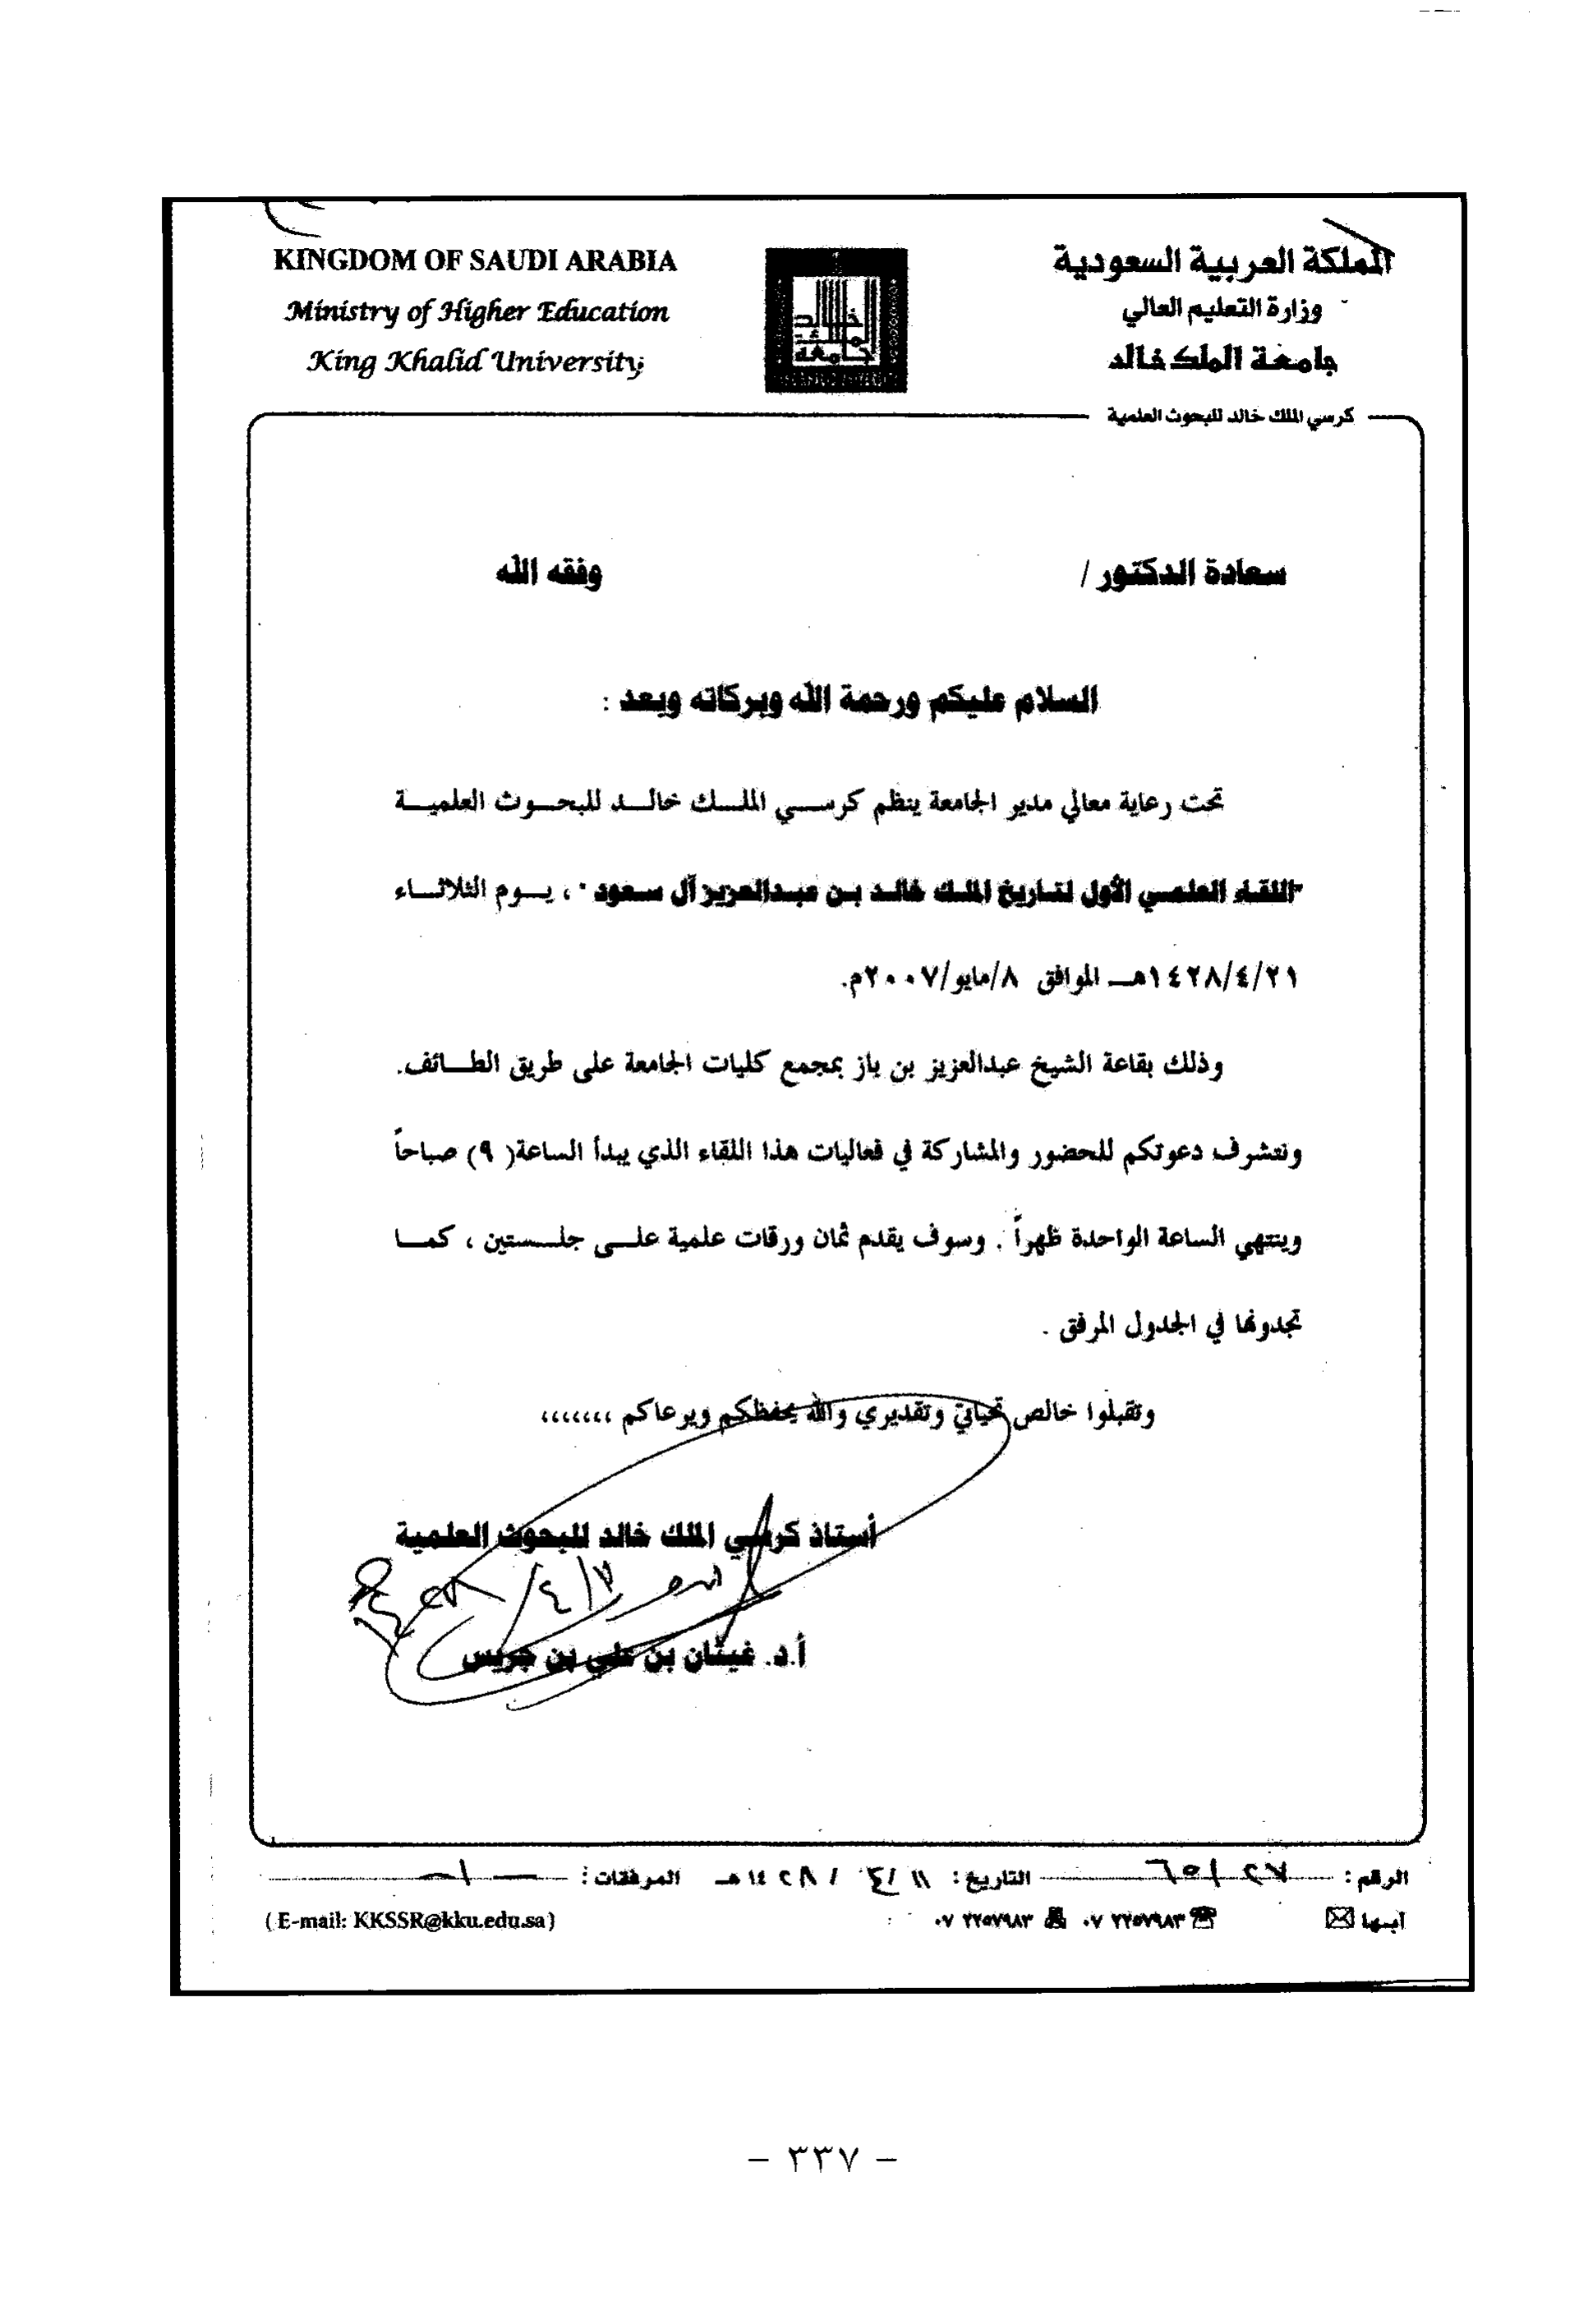 KINGDOM OF SAUDI ARABIA
Ministry of Higher Education
King Khalid University
خالد
الملك
جامعة
المملكة العربية السعودية
وزارة التعليم العالي
جامعة الملك خالد
كرسي الملك خالد للبحوث العلمية
سعادة الدكتور / وفقه الله
السلام عليكم ورحمة الله وبركاته وبعد :
تحت رعاية معالي مدير الجامعة ينظم كرسي الملك خالد للبحوث العلمية
"اللقاء العلمي الأول لتاريخ الملك خالد بن عبدالعزيز آل سعود" ، يوم الثلاثاء
١٤٢٨/٤/٢١هـ الموافق ٨/مايو/٢٠٠٧م.
وذلك بقاعة الشيخ عبدالعزيز بن باز بمجمع كليات الجامعة على طريق الطائف.
ونتشرف دعوتكم للحضور والمشاركة في فعاليات هذا اللقاء الذي يبدأ الساعة( ٩) صباحاً
وينتهي الساعة الواحدة ظهراً . وسوف يقدم ثمان ورقات علمية على جلستين ، كما
تجدونها في الجدول المرفق .
وتقبلوا خالص تحياتي وتقديري والله يحفظكم ويرعاكم ،،،،،،،
أستاذ كرسي الملك خالد للبحوث العلمية
أ.د. غيثان بن علي بن جريس
الرقم : التاريخ : ١١ / ٤ / ١٤٢٨ هـ المرفقات :
أبها ٠٧ ٢٢٥٧٩٨٣ ٠٧ ٢٢٥٧٩٨٣ ( E-mail: KKSSR@kku.edu.sa )
- ٣٣٧ -